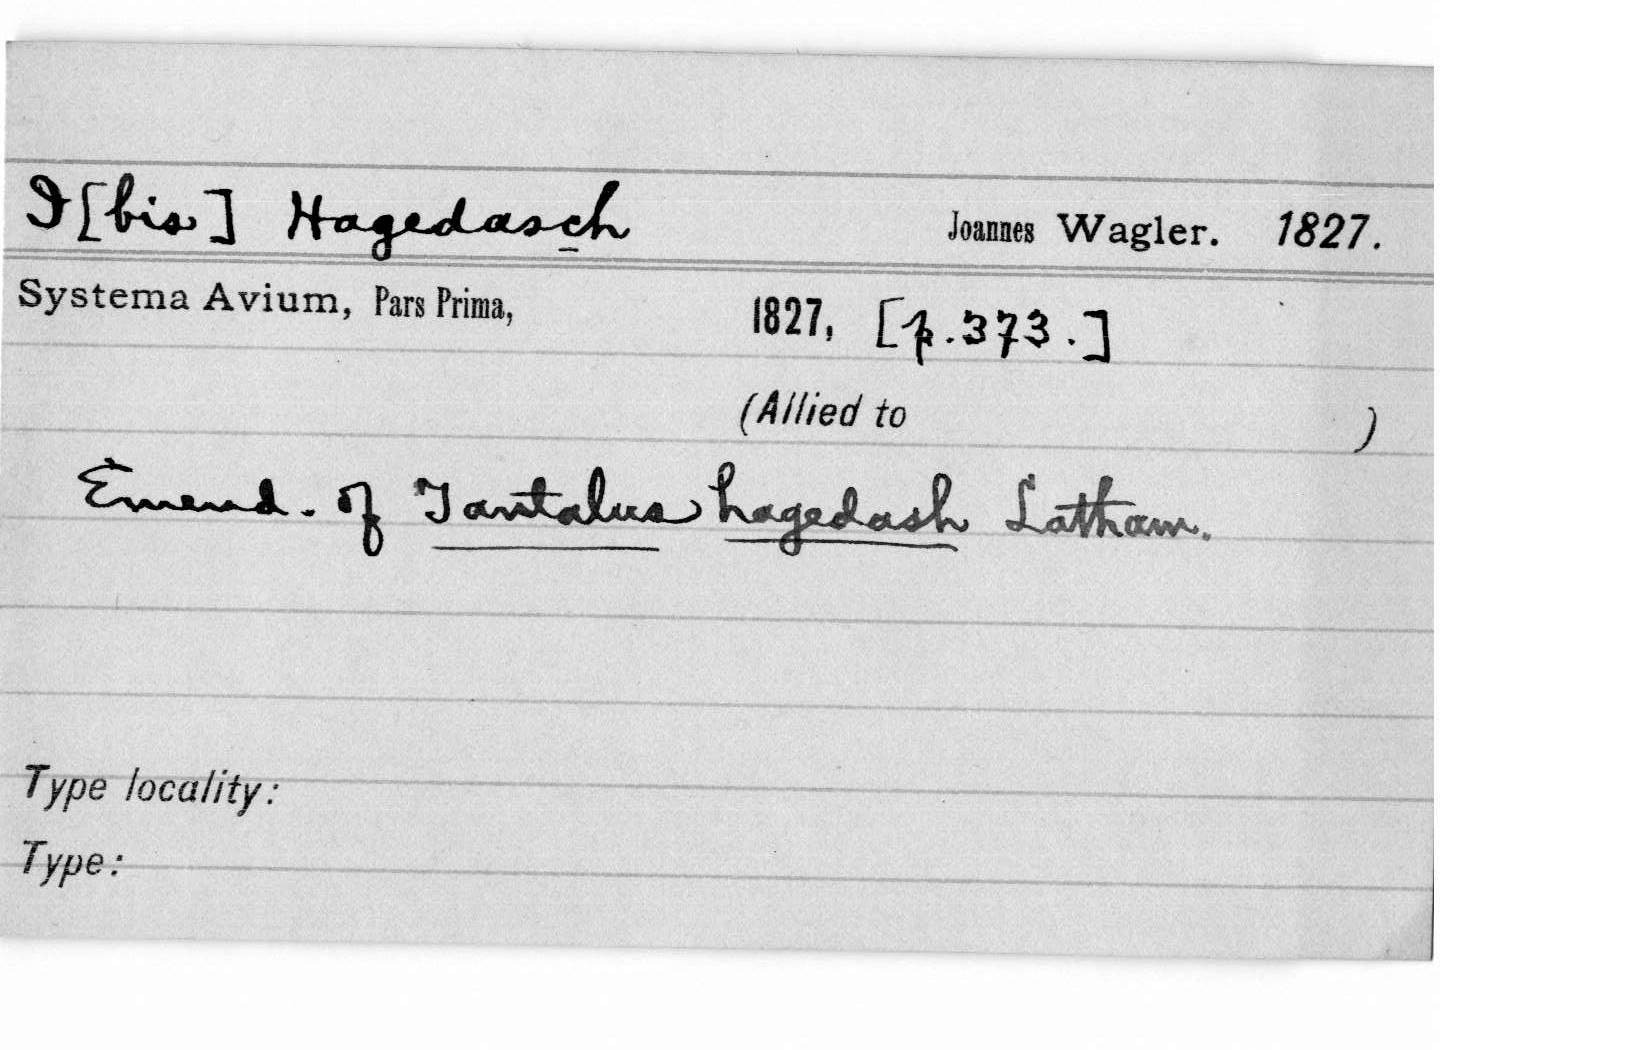 I[bis] Hagedasch Joannes Wagler. 1827.
Systema Avium, Pars Prima, 1827, [p.373.]
(Allied to )
Emend. of Tantalus hagedash Latham.
Type locality:
Type: